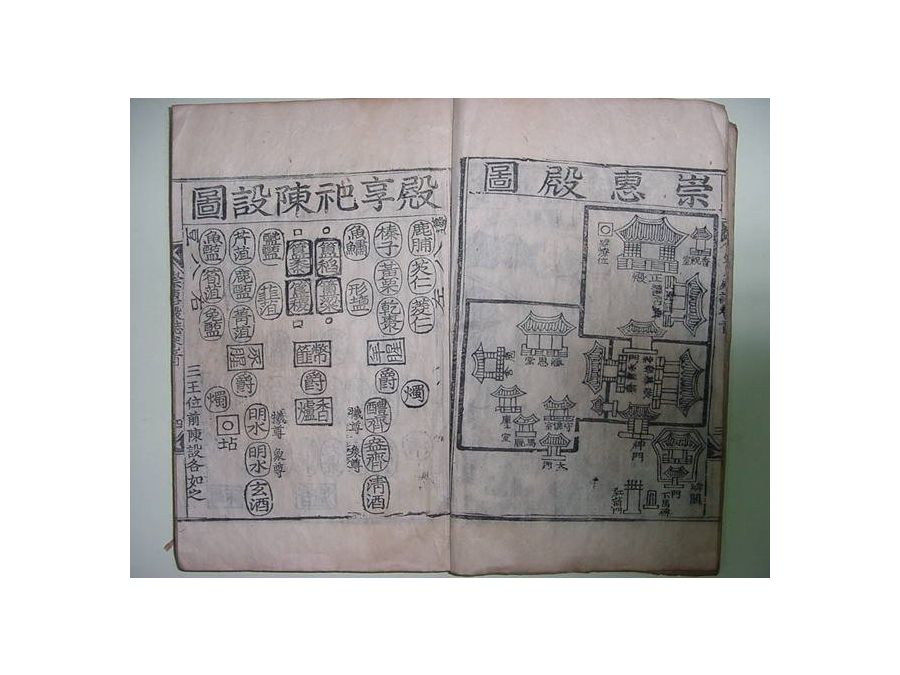 崇惠殿圖
香祝室
正殿
碑門
大門
庫堂
碑閣
門
下馬碑
紅箭門
殿享祀陳設圖
鹿脯
芡仁
菱仁
榛子
黃栗
乾棗
魚鱐
形鹽
簠稻
簠粱
簋黍
簋稷
醓醢
韭菹
芹菹
鹿醢
菁菹
魚醢
筍菹
兔醢
豕腥
幣篚
爵
爵
爵
燭
香爐
燭
醴齊
盎齊
清酒
犧尊
象尊
犧尊
象尊
明水
明水
玄酒
坫
三王位前陳設各如之